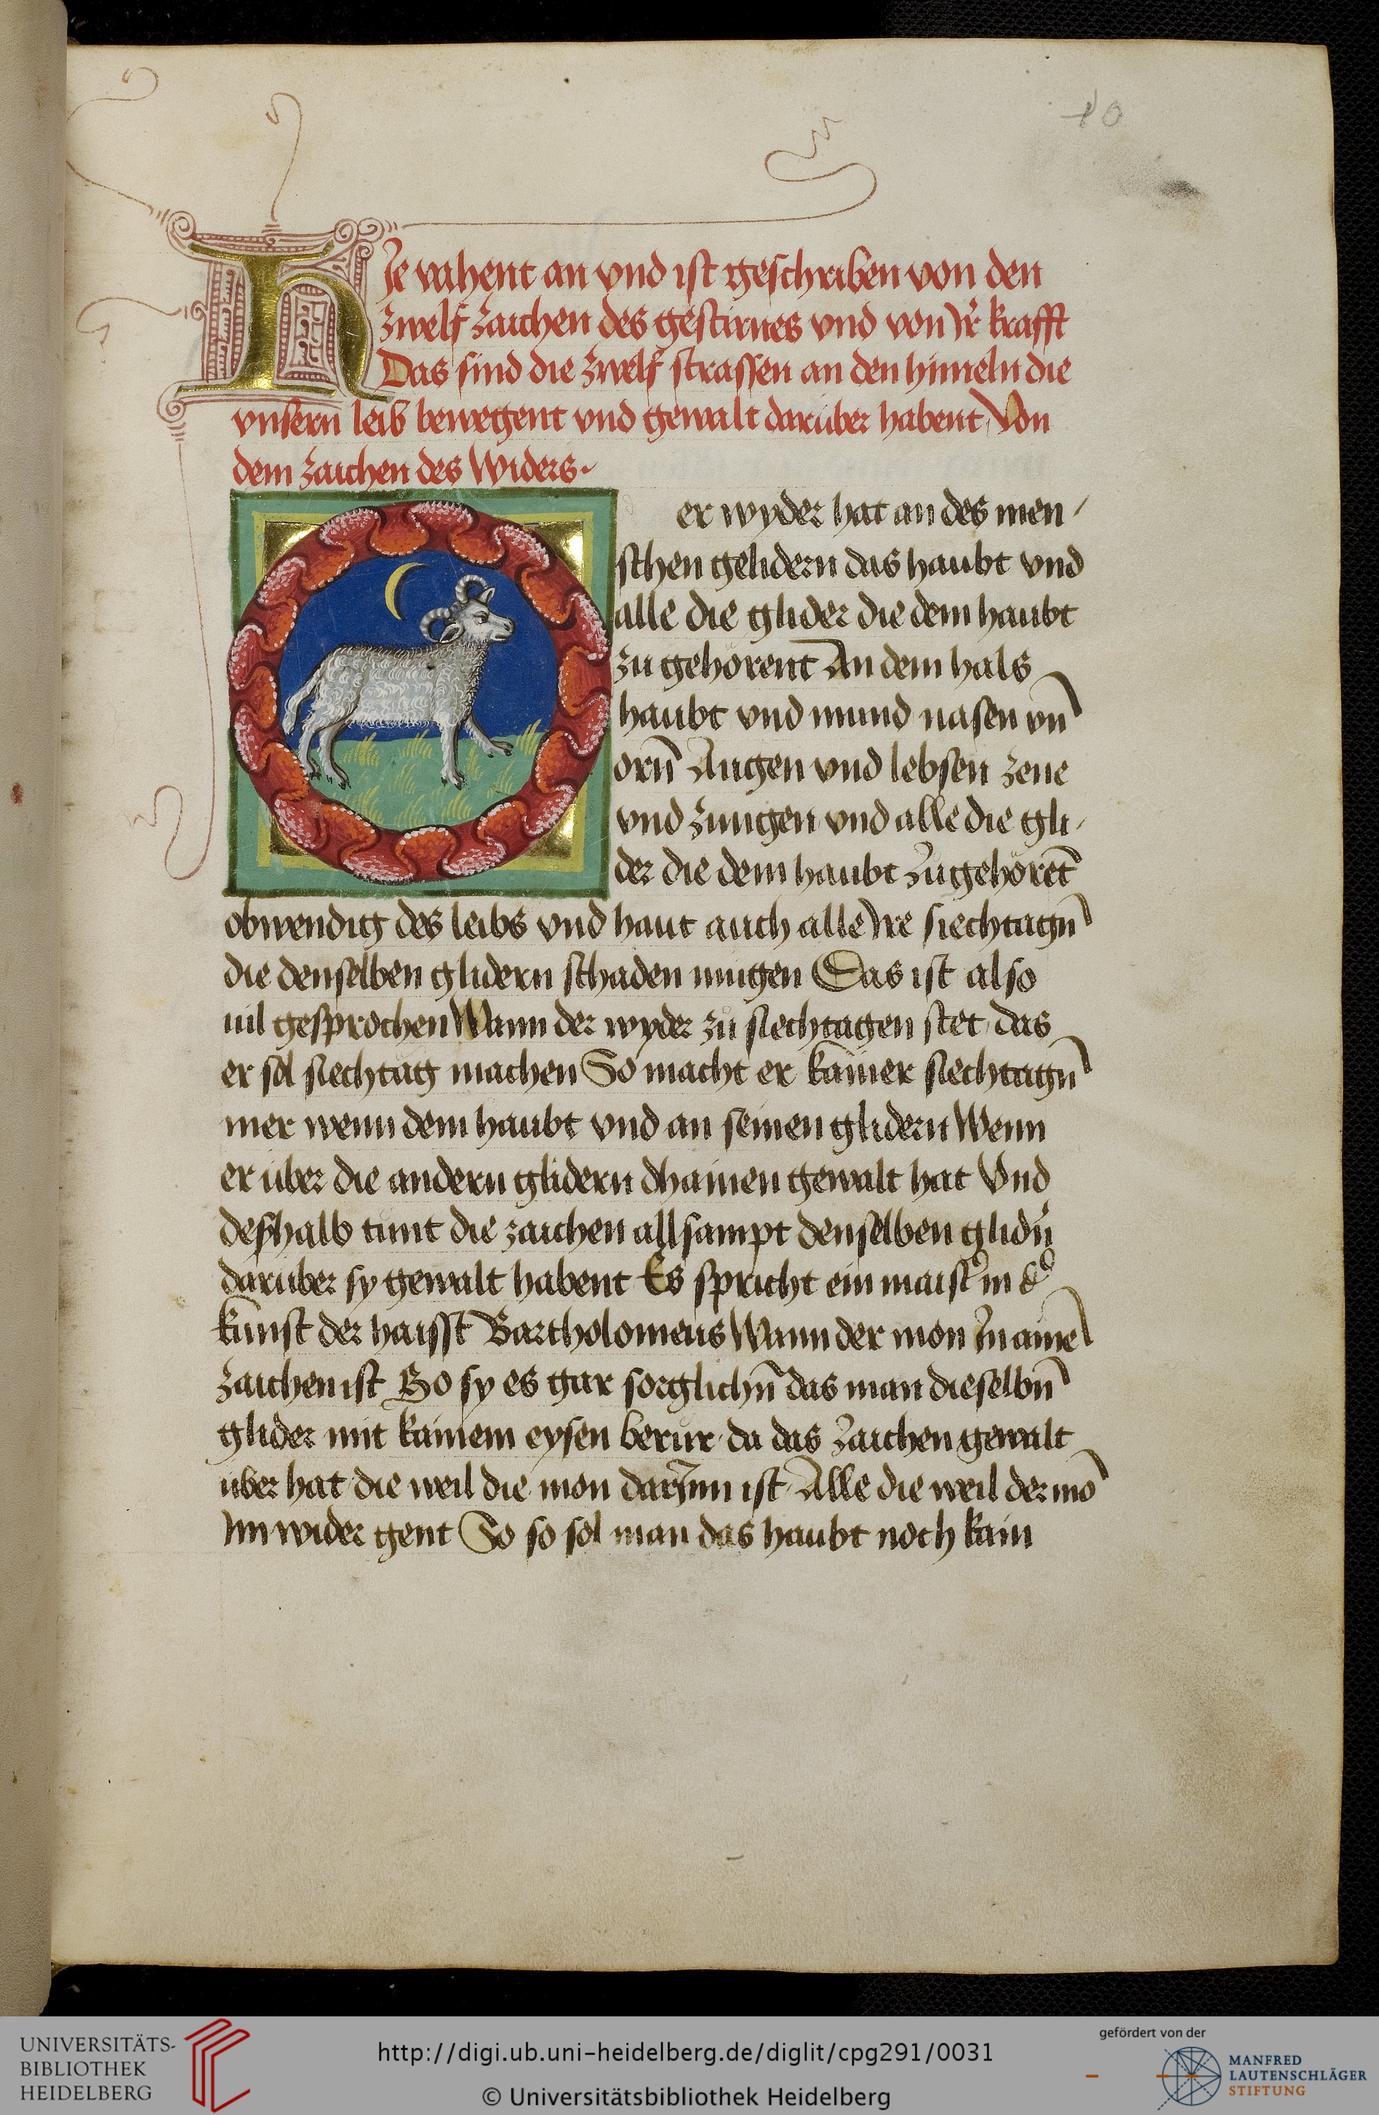 10
HJe vahent an vnd ist geschriben von den
zwelf zaichen des gestirnes vnd von Jr krafft
Das sind die zwelf strassen an den himeln die
vnsern leib bewegent vnd gewalt darüber habent Von
dem zaichen des Widers
er wyder hat an des men
schen gelidern das haubt vnd
alle die glider die dem haubt
zu gehörent An dem hals
haubt vnd mund nasen vn̄
orn̄ Augen vnd lebsen zene
vnd zungen vnd alle die gli
der die dem haubt zugehöret̄
obwendig des leibs vnd haut auch alle Jre siechtagn̄
die denselben glidern schaden mügen Das ist also
uil gesprochen Wann der wyder zů siechtagen stet das
er sol siechtag machen So macht er kainer siechtagn̄
mer wenn dem haubt vnd an seinen glidern Wenn
er über die andern glidern dhainen gewalt hat Vnd
deshalb tunt die zaichen allsampt denselben glidn̄
darüber sy gewalt habent Es spricht ein maist in d
kunst der haisst Bartholomeus Wann der mon Jn aine
zaichen ist So sy es gar sorglichn̄ das man dieselbn̄
glider mit kainem eysen berür da das zaichen gewalt
über hat die weil die mon darJnn ist Alle die weil der mō
Jm wider gent So so sol man das haubt noch kain
UNIVERSITÄTS-
BIBLIOTHEK
HEIDELBERG
http://digi.ub.uni-heidelberg.de/diglit/cpg291/0031
© Universitätsbibliothek Heidelberg
gefördert von der
MANFRED
LAUTENSCHLÄGER
STIFTUNG